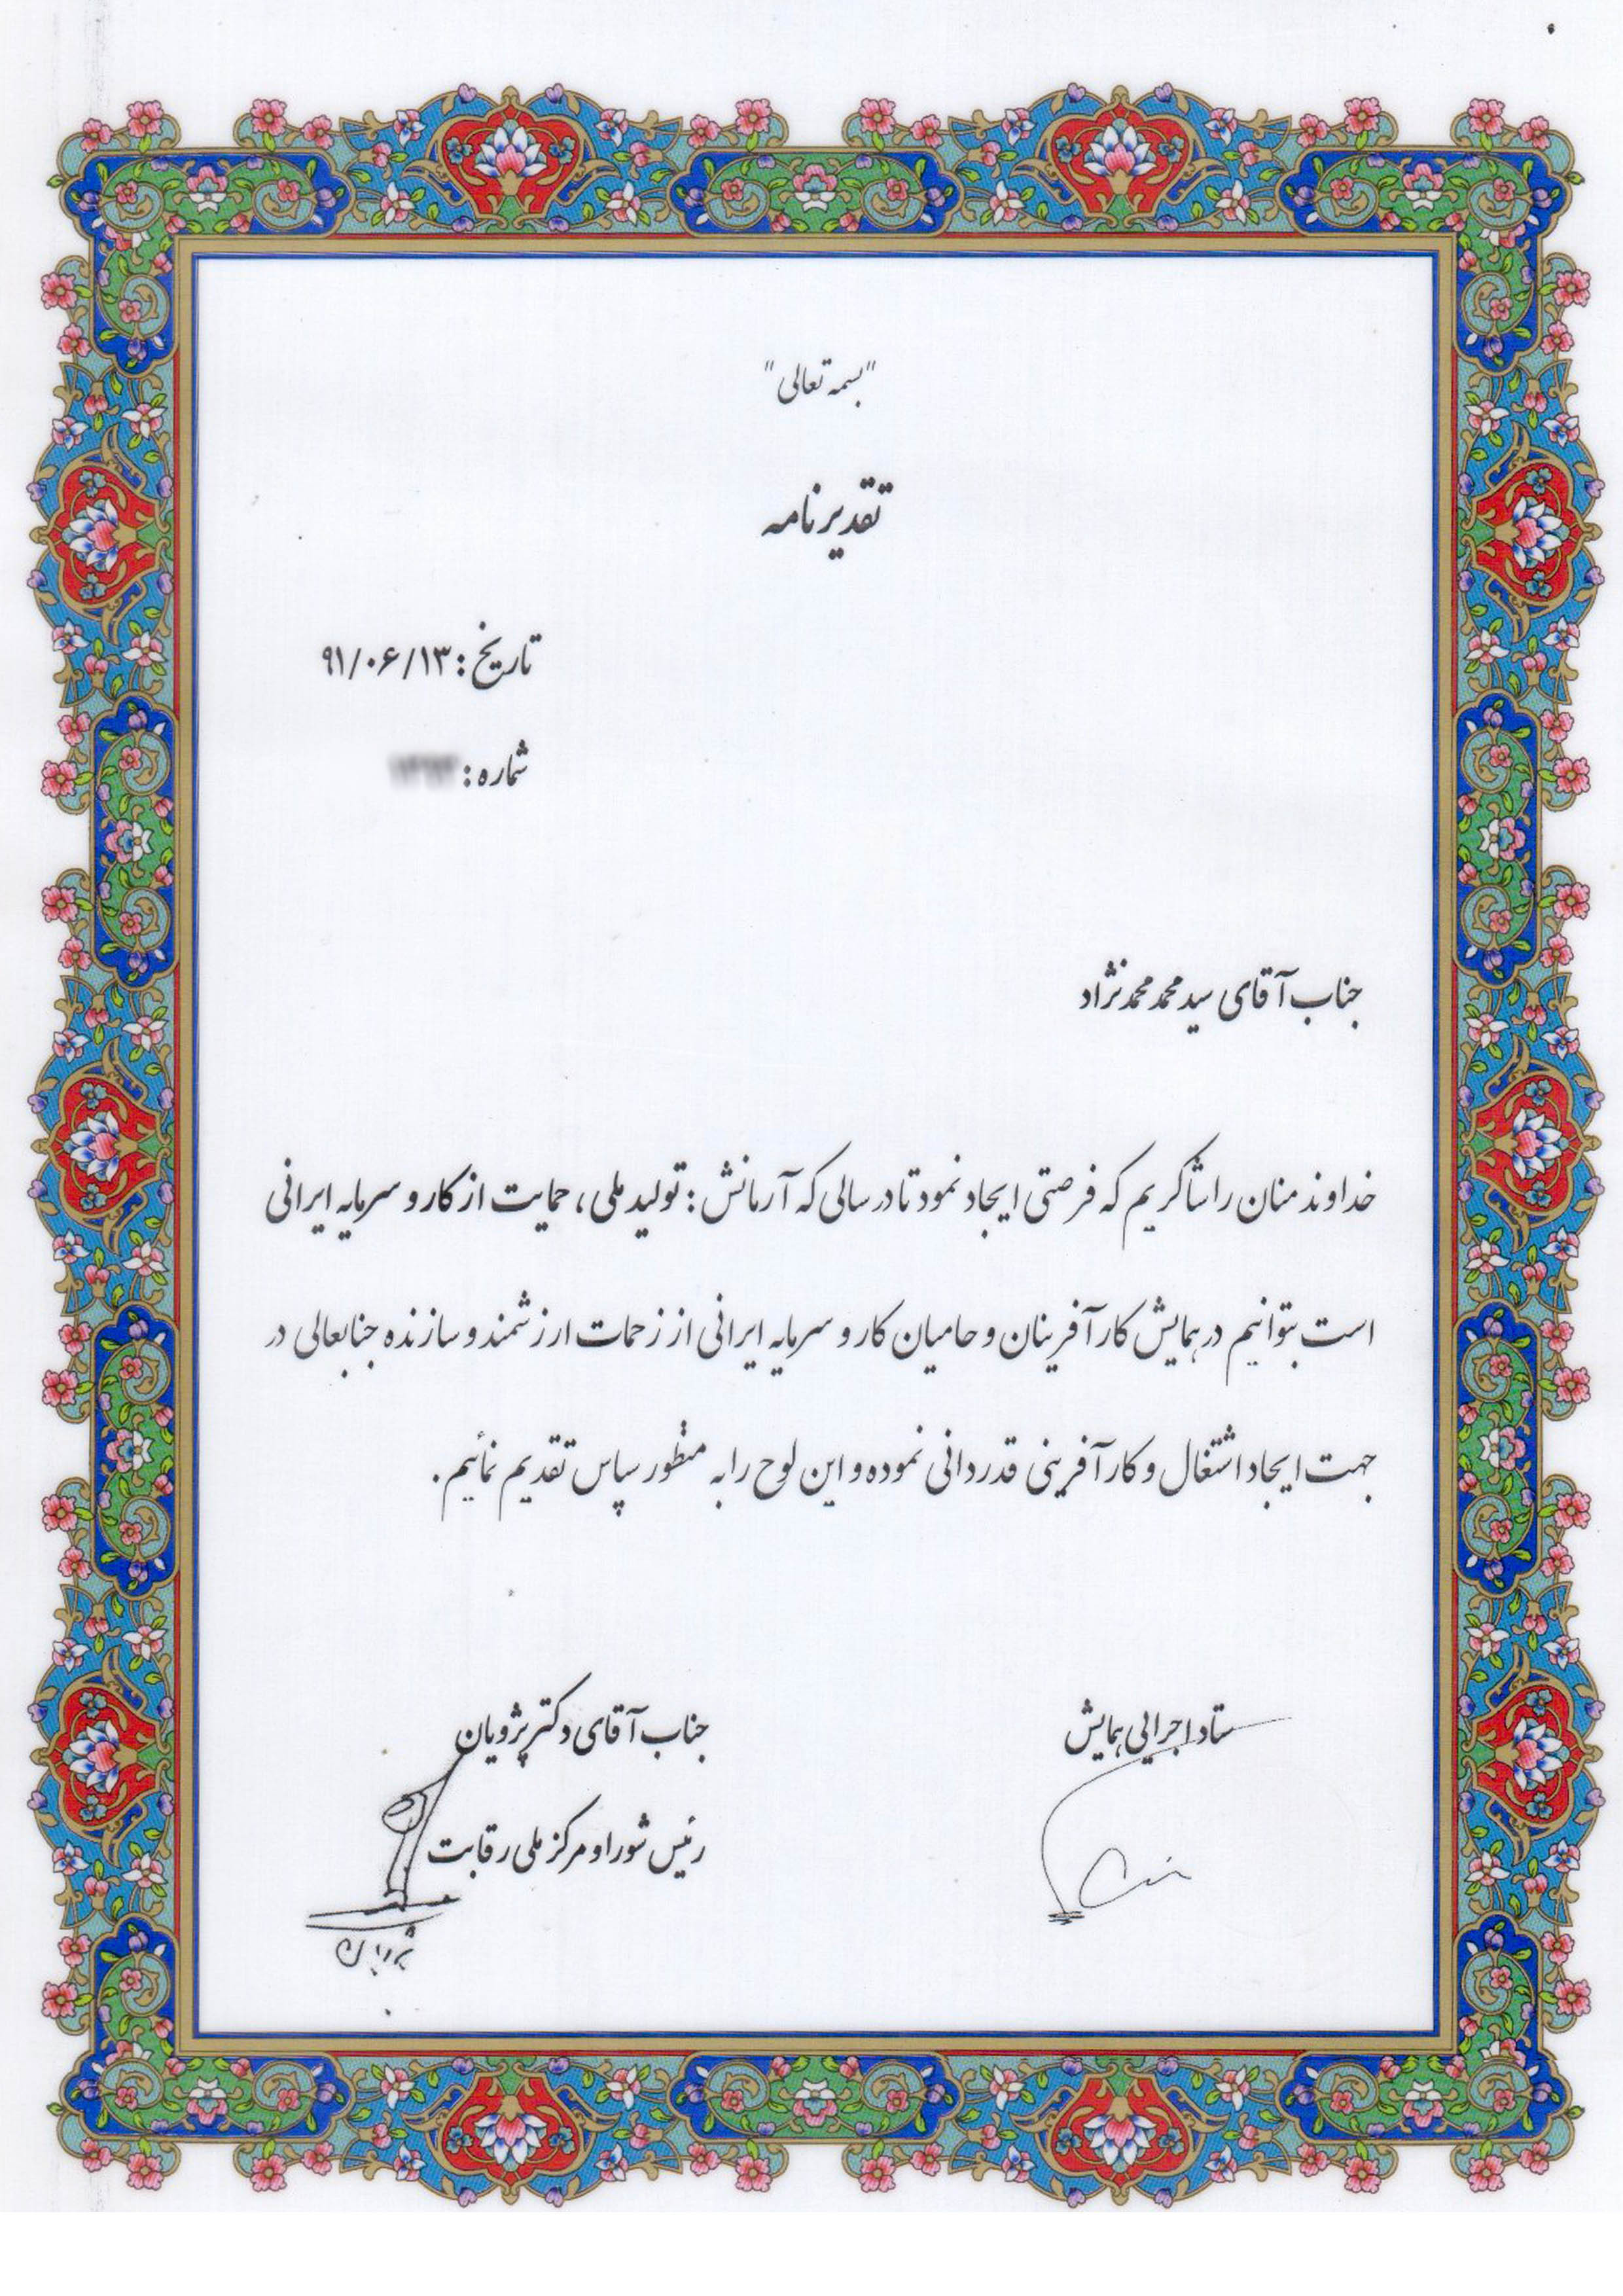 "بسمه تعالی"
تقدیرنامه
تاریخ : ۹۱/۰۶/۱۳
شماره :
جناب آقای سید محمد محمدنژاد
خداوند منان را شاکریم که فرصتی ایجاد نمود تا در سالی که آرمانش : تولید ملی ، حمایت از کار و سرمایه ایرانی
است بتوانیم در همایش کارآفرینان و حامیان کار و سرمایه ایرانی از زحمات ارزشمند و سازنده جنابعالی در
جهت ایجاد اشتغال و کارآفرینی قدردانی نموده و این لوح را به منظور سپاس تقدیم نمائیم .
ستاد اجرایی همایش
جناب آقای دکتر پژویان
رئیس شورا و مرکز ملی رقابت